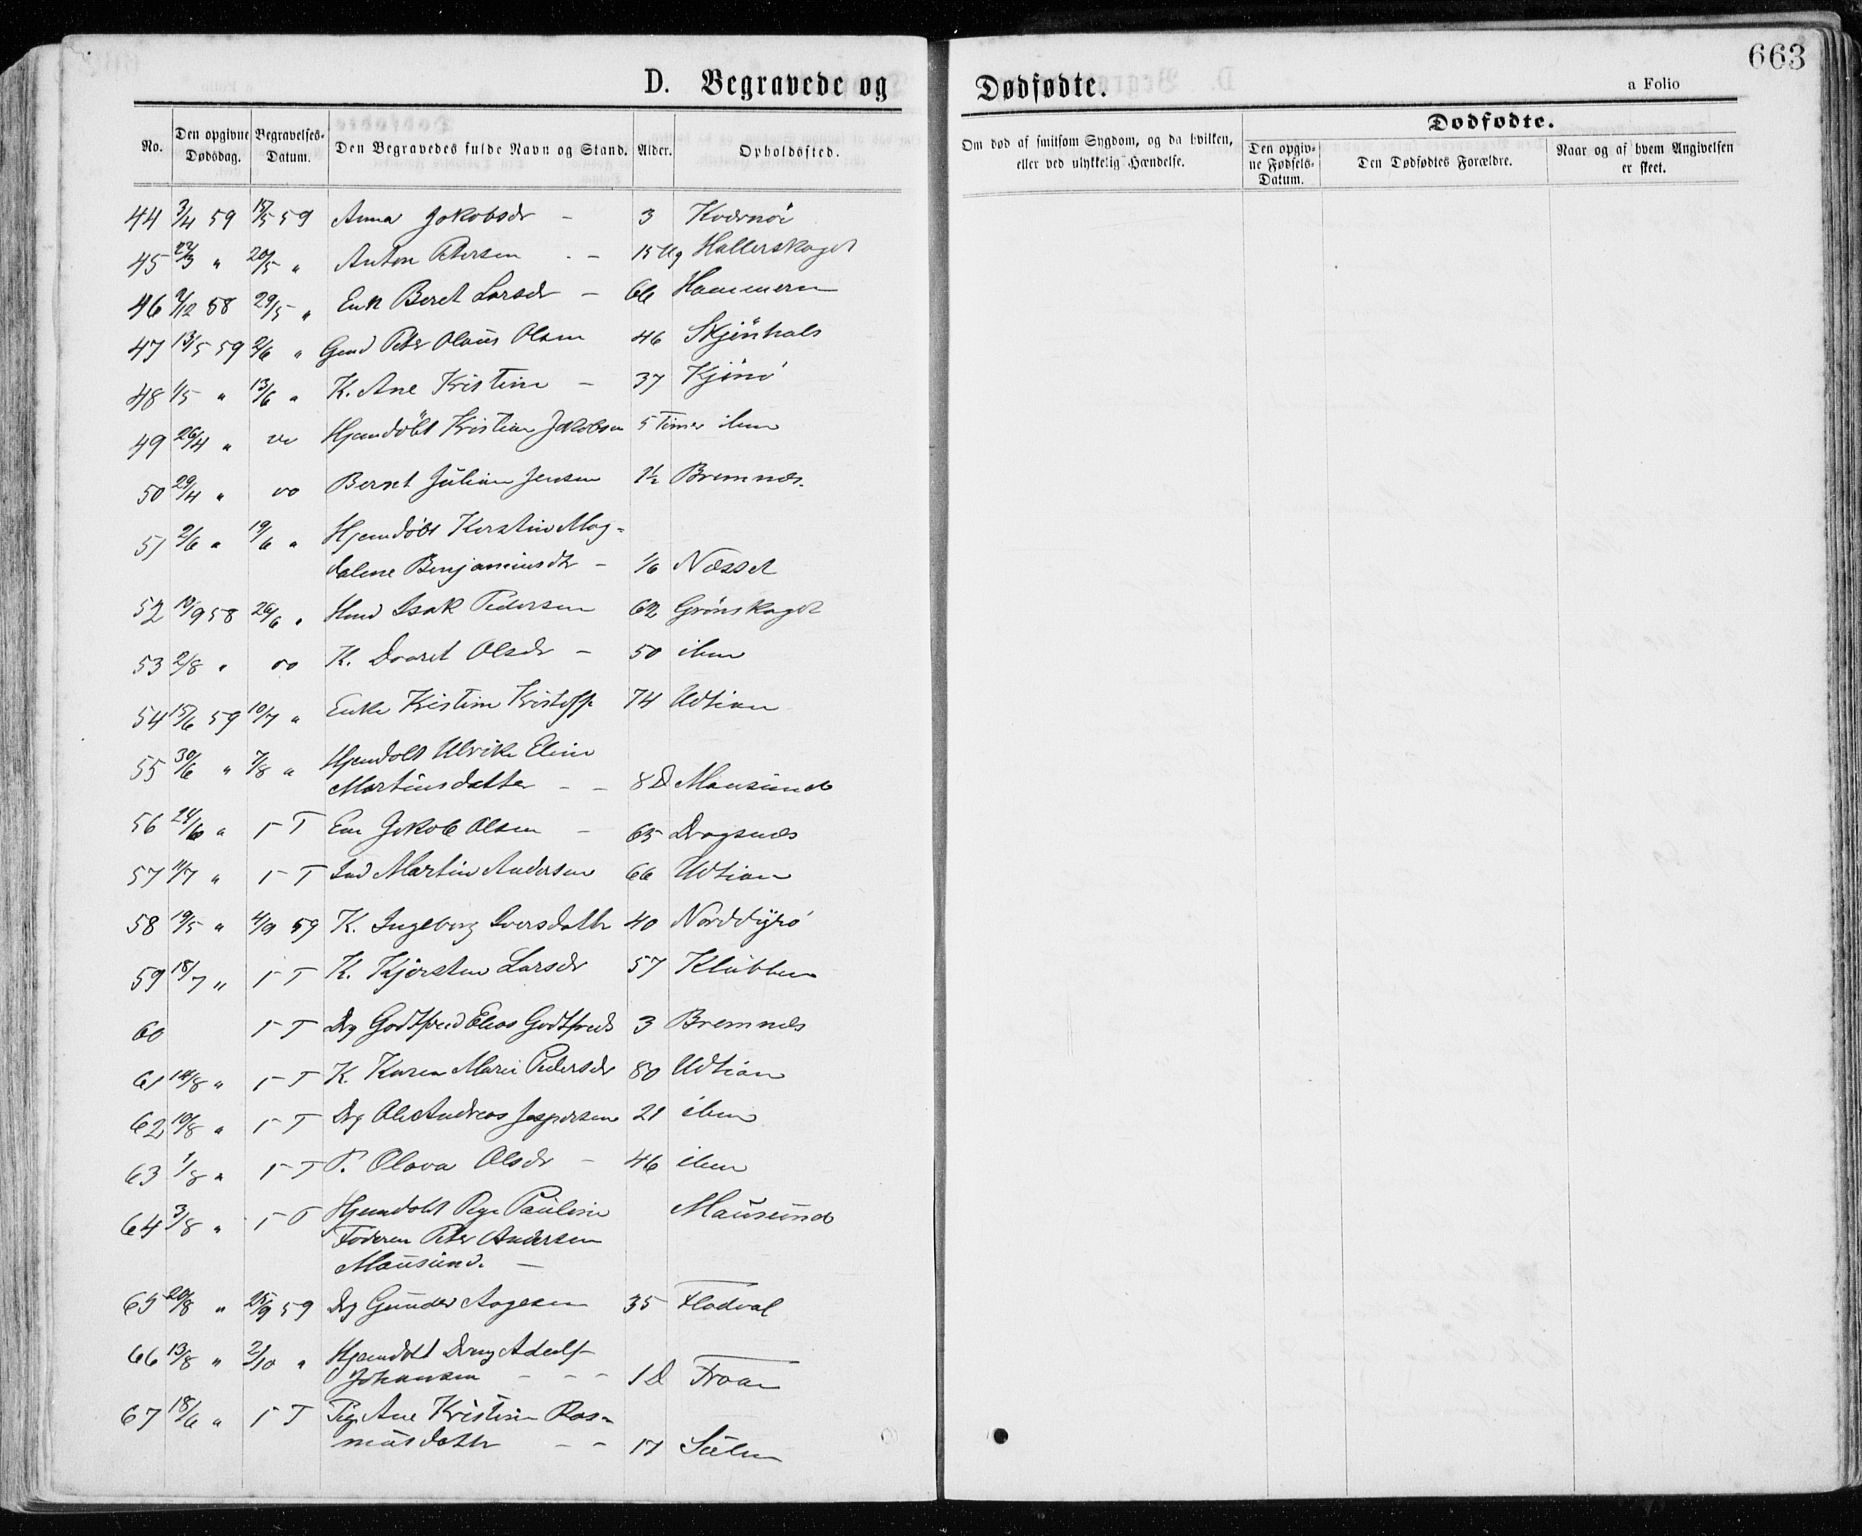 663
D. Begravede og Dødfødte. a Folio
No. Den opgivne Dødsdag. Begravelses-Datum. Den Begravedes fulde Navn og Stand. Alder. Opholdssted.
Om død af smitsom Sygdom, og da hvilken, eller ved ulykkelig Hændelse.
Dødfødte.
Den opgivne Fødsels-Datum. Den Dødfødtes Forældre. Naar og af hvem Angivelsen er skeet.
44 3/4 59 15/5 59 Anna Jakobsdr - 3 Kværnøi
45 23/3 " 20/5 " Anton Petersen - 15 Ug Hallerskaget
46 2/12 58 29/5 " Enk Beret Larsdr - 66 Hammern
47 13/5 59 2/6 " Gmd Peter Olaus Olsen 46 Skjønhals
48 1/5 " 13/6 " K. Ane Kristine - 37 Kjønø
49 26/4 " Hjemdøbt Kristian Jakobsen 5 Timer ibm
50 29/4 " Bernt Julian Jensen 1½ Bremnæs.
51 2/6 " 19/6 " Hjemdøbt Kerstine Mag-
dalene Benjaminsdtr - 1/6 Næsset
52 58 26/6 " Isak Pedersen 62 Grønskaget
53 2/8 " K. Olsdr - 50 ibm
54 15/6 59 10/7 " Enke Kristine Kristoff 74 Udtian
55 30/6 " 7/8 " Hjemdøbt Ulrike Eline
Martinsdatter - - 8 D Mausund
56 24/6 " Jakob Olsen - 65 Dragsnæs
57 11/7 " Ind Martin Andersen 66 Udtian
58 19/5 " 4/9 59 K. Ingeborg Iversdatter 40 Norddyrø
59 18/7 " K. Kjersten Larsdr 57 Klubben
60 Drg Godtfred Elias Godtfreds 3 Bremnæs
61 14/8 " K. Karen Marie Pedersdr 80 Udtian
62 10/8 " Drg Ole Andreas Jespersen 21 ibm
63 1/8 " P. Olava Olsdr - 46 ibm
64 3/8 " Hjemdøbt Pige Pauline Mausund
Faderen Peter Andersen
Mausund. -
65 20/8 " 25/9 59 Drg Gunder Aagesen 35 Flodval
66 13/8 " 2/10 " Hjemdøbt Dreng Adolf
Johansen - - - 1 D Froan
67 18/6 " Pig. Ane Kristine Ras-
musdatter - - 17 Sulen